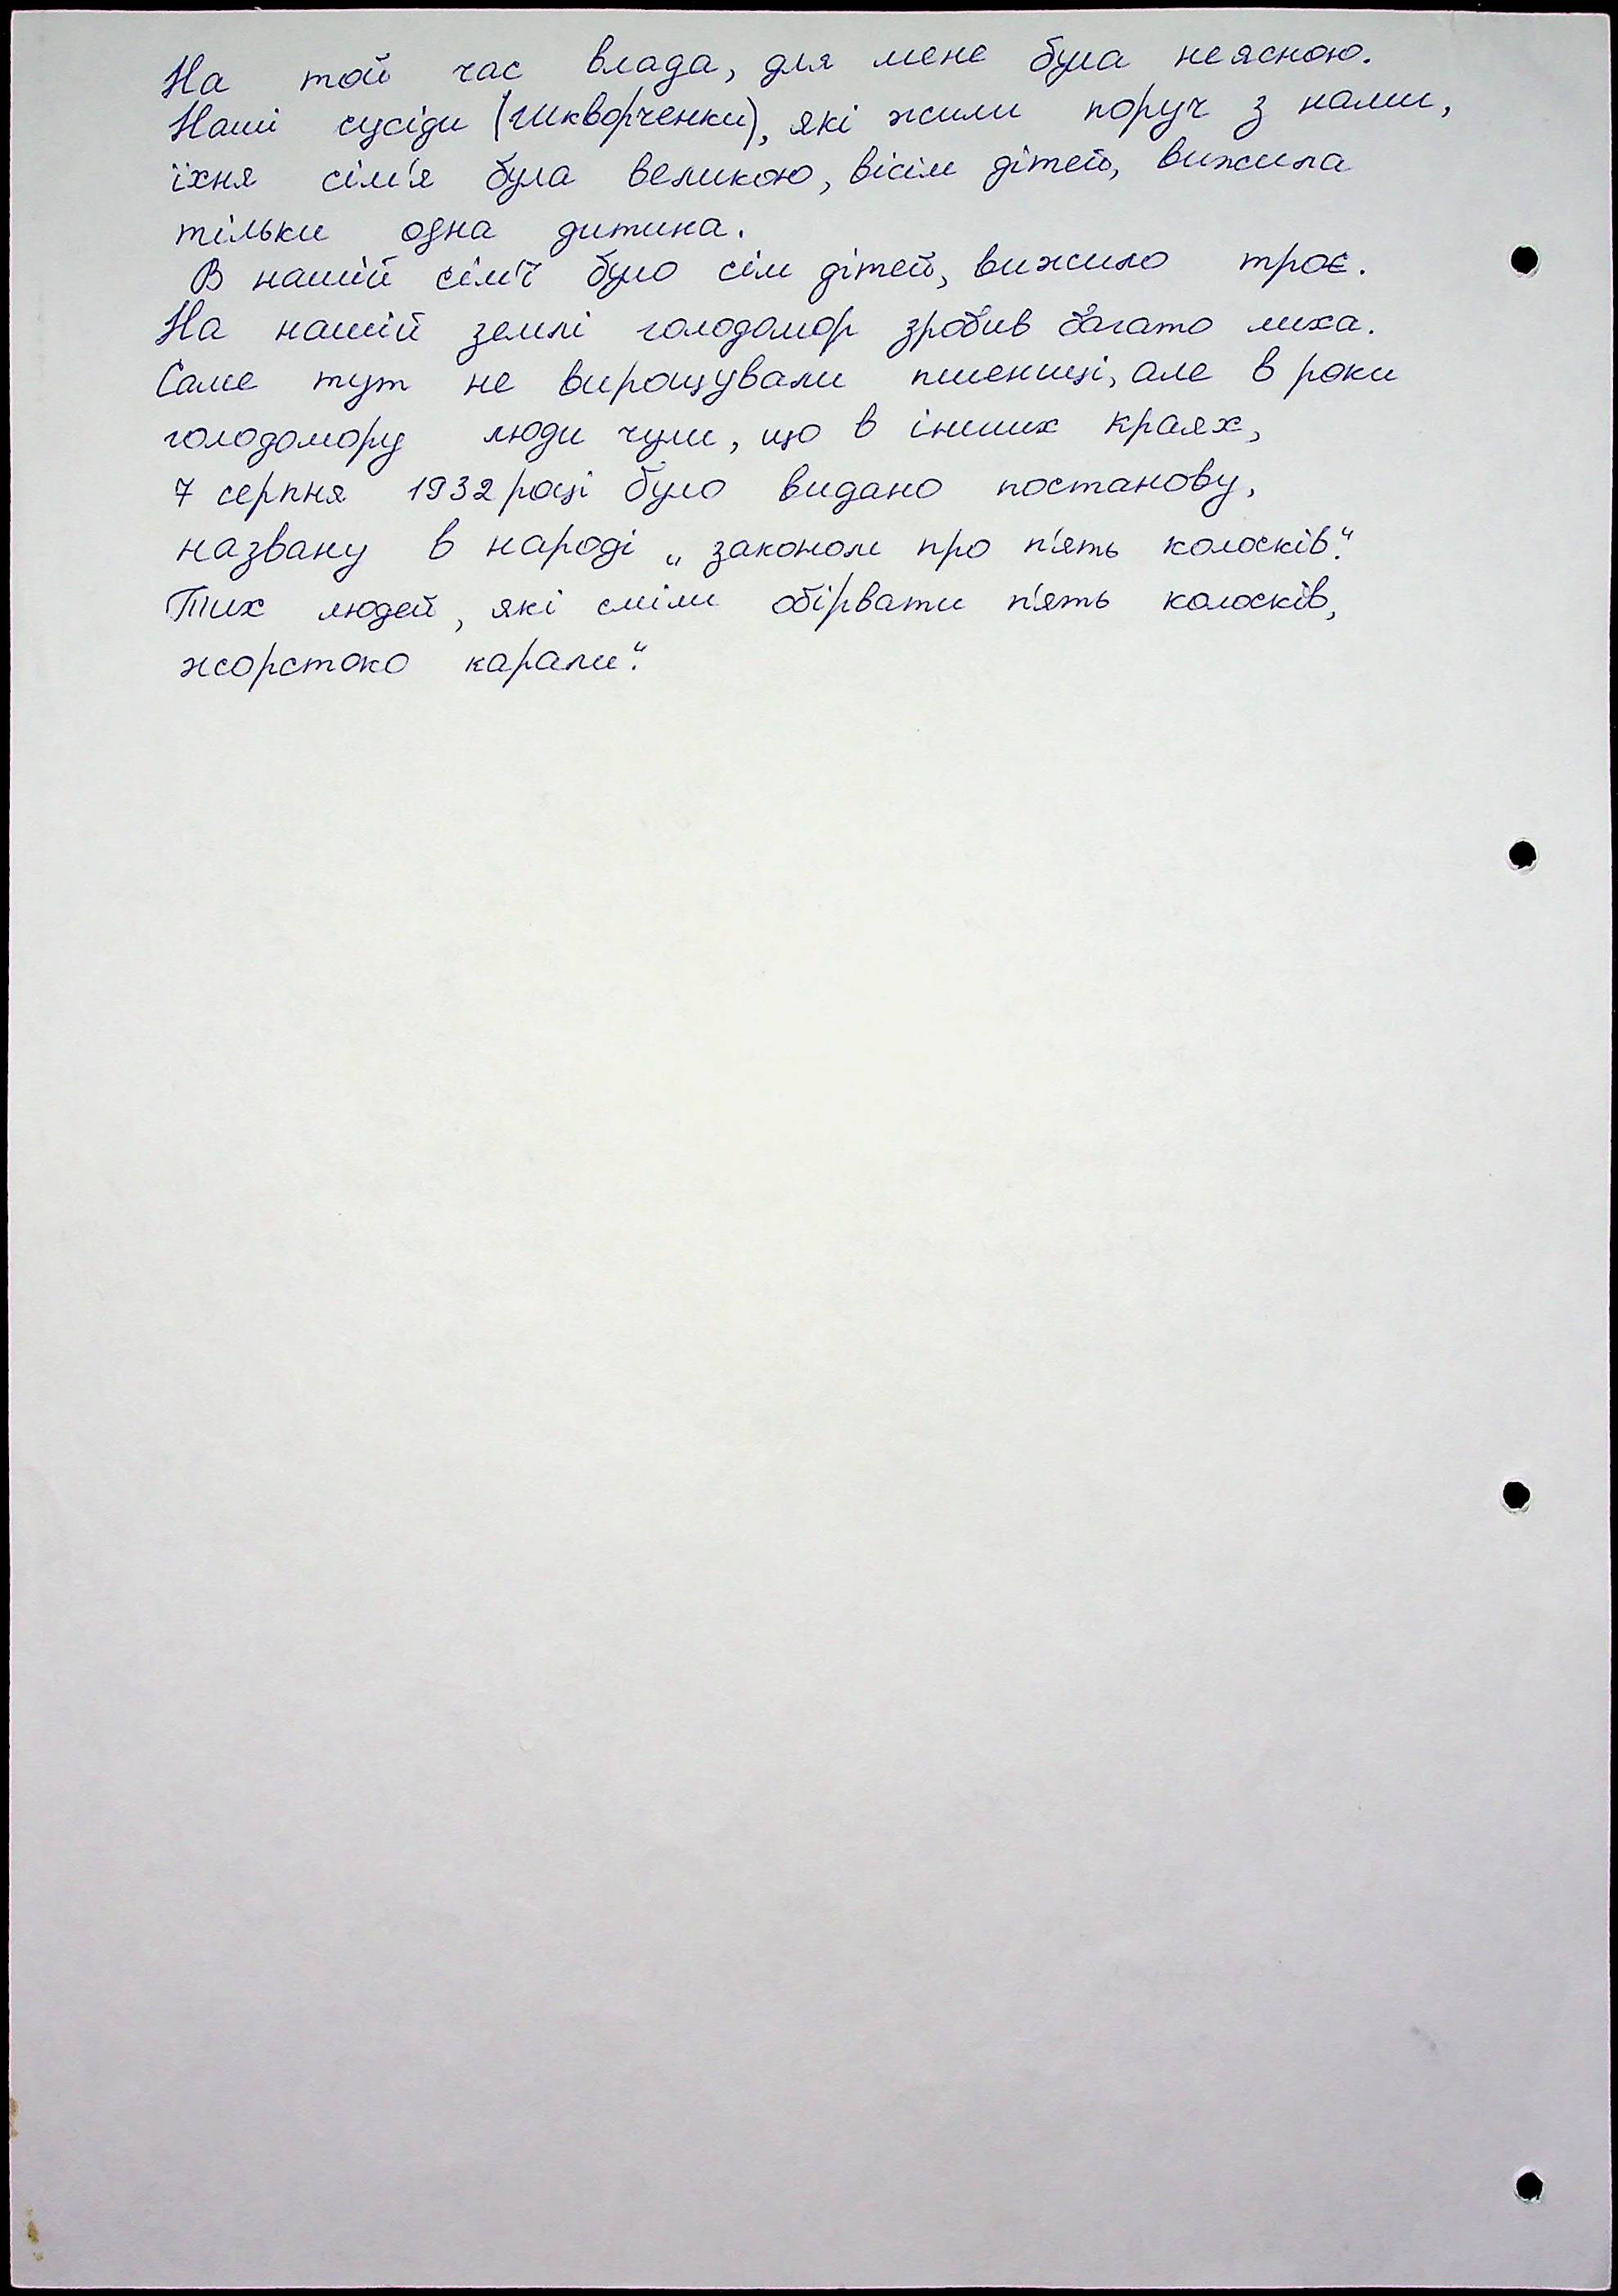 На той час влада, для мене була неясною.
Наші сусіди (Шкворченки), які жили поруч з нами,
їхня сім'я була великою, вісім дітей, вижила
тільки одна дитина.
В нашій сім'ї було сім дітей, вижило троє.
На нашій землі голодомор зробив багато лиха.
Саме тут не вирощували пшениці, але в роки
голодомору люди чули, що в інших краях,
7 серпня 1932 році було видано постанову,
названу в народі „законом про п'ять колосків".
Тих людей, які сміли обірвати п'ять колосків,
жорстоко карали".